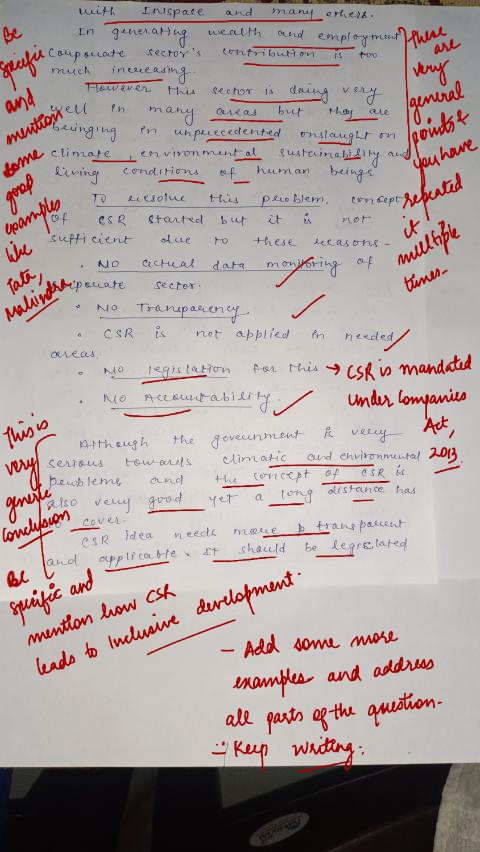 with INspace and many others.
In generating wealth and employment
Corporate sector's contribution is too
much increasing.
However this sector is doing very
well in many areas but they are
beinging in unprecedented onslaught on
climate, environmental sustainability and
living conditions of human beings
To resolve this problem, concept
of CSR started but it is not
sufficient due to these reasons -
• No actual data monitoring of
corporate sector.
• No Transparency
• CSR is not applied in needed
areas.
• No legislation for this
• No Accountability.
Although the government is very
serious towards climatic and environmental
problems and the concept of CSR is
also very good yet a long distance has
cover.
CSR idea needs more transparent
and applicable. It should be legislated
Be
specific
and
mention
some
good
examples
like
Tata,
Mahindra
These
are
very
general
points &
you have
repeated
it
multiple
times.
→ CSR is mandated
under Companies
Act,
2013.
This is
very
generic
conclusion
Be
specific and
mention how CSR
leads to inclusive development.
- Add some more
examples and address
all parts of the question.
Keep writing.